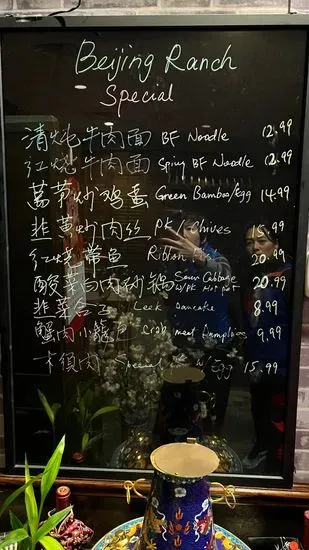 Beijing Ranch
Special
清炖牛肉面 BF Noodle 12.99
红烧牛肉面 Spicy BF Noodle 12.99
炒鸡蛋 Green Bamboo/Egg 14.99
韭黄炒肉丝 PK/Chives 15.99
红烧带鱼 Ribbon 20.99
酸菜白肉砂锅 Sour Cabbage W/PK Hot Pot 20.99
韭菜合子 Leek Pancake 8.99
蟹肉小龍包 Crab meat Dumplings 9.99
肉 Special W/Egg 15.99